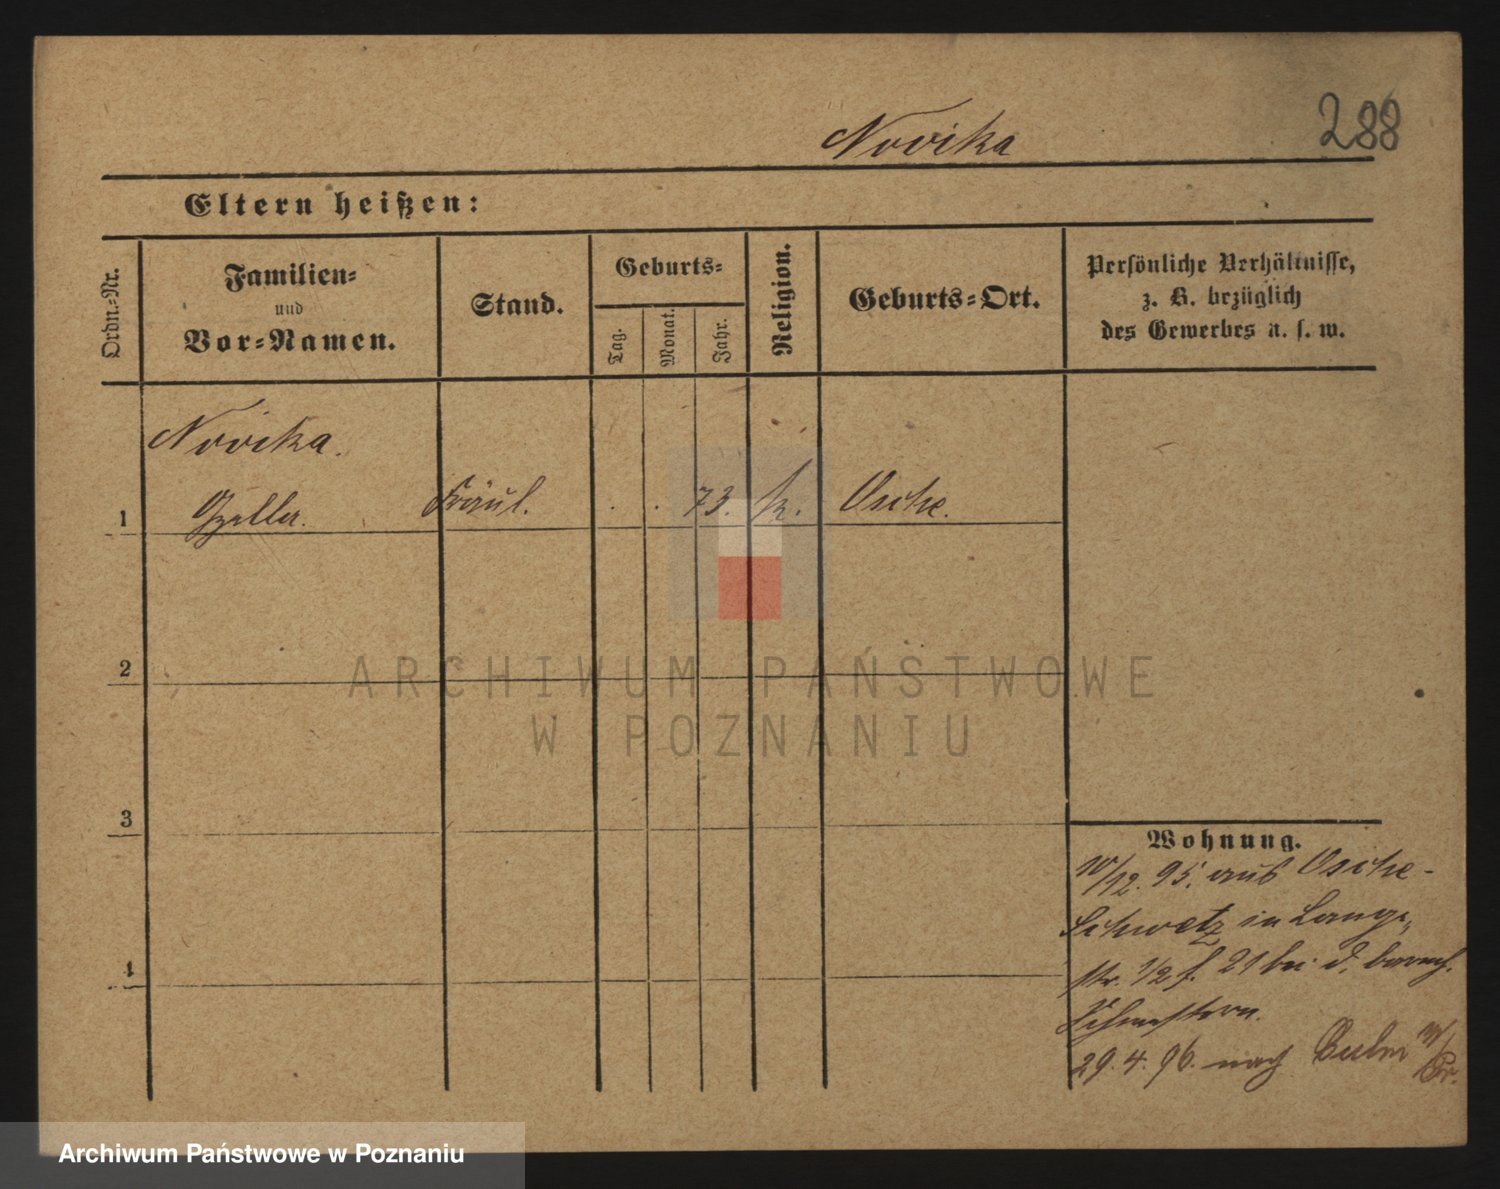 Novika
288
Eltern heißen:
Ordn.-Nr.
Familien-
und
Vor-Namen.
Stand.
Geburts-
Tag.
Monat.
Jahr.
Religion.
Geburts-Ort.
Persönliche Verhältnisse,
z. B. bezüglich
des Gewerbes u. s. w.
Novika.
1
Fräul.
. . 73.
k.
Osche.
2
3
4
Wohnung.
10/12. 95. aus Osche-
Schwetz in Lange-
str. 1/2 f. 21 bei d. barmh.
Schwestern.
29. 4. 96. nach Culm
ARCHIWUM PAŃSTWOWE
W POZNANIU
Archiwum Państwowe w Poznaniu